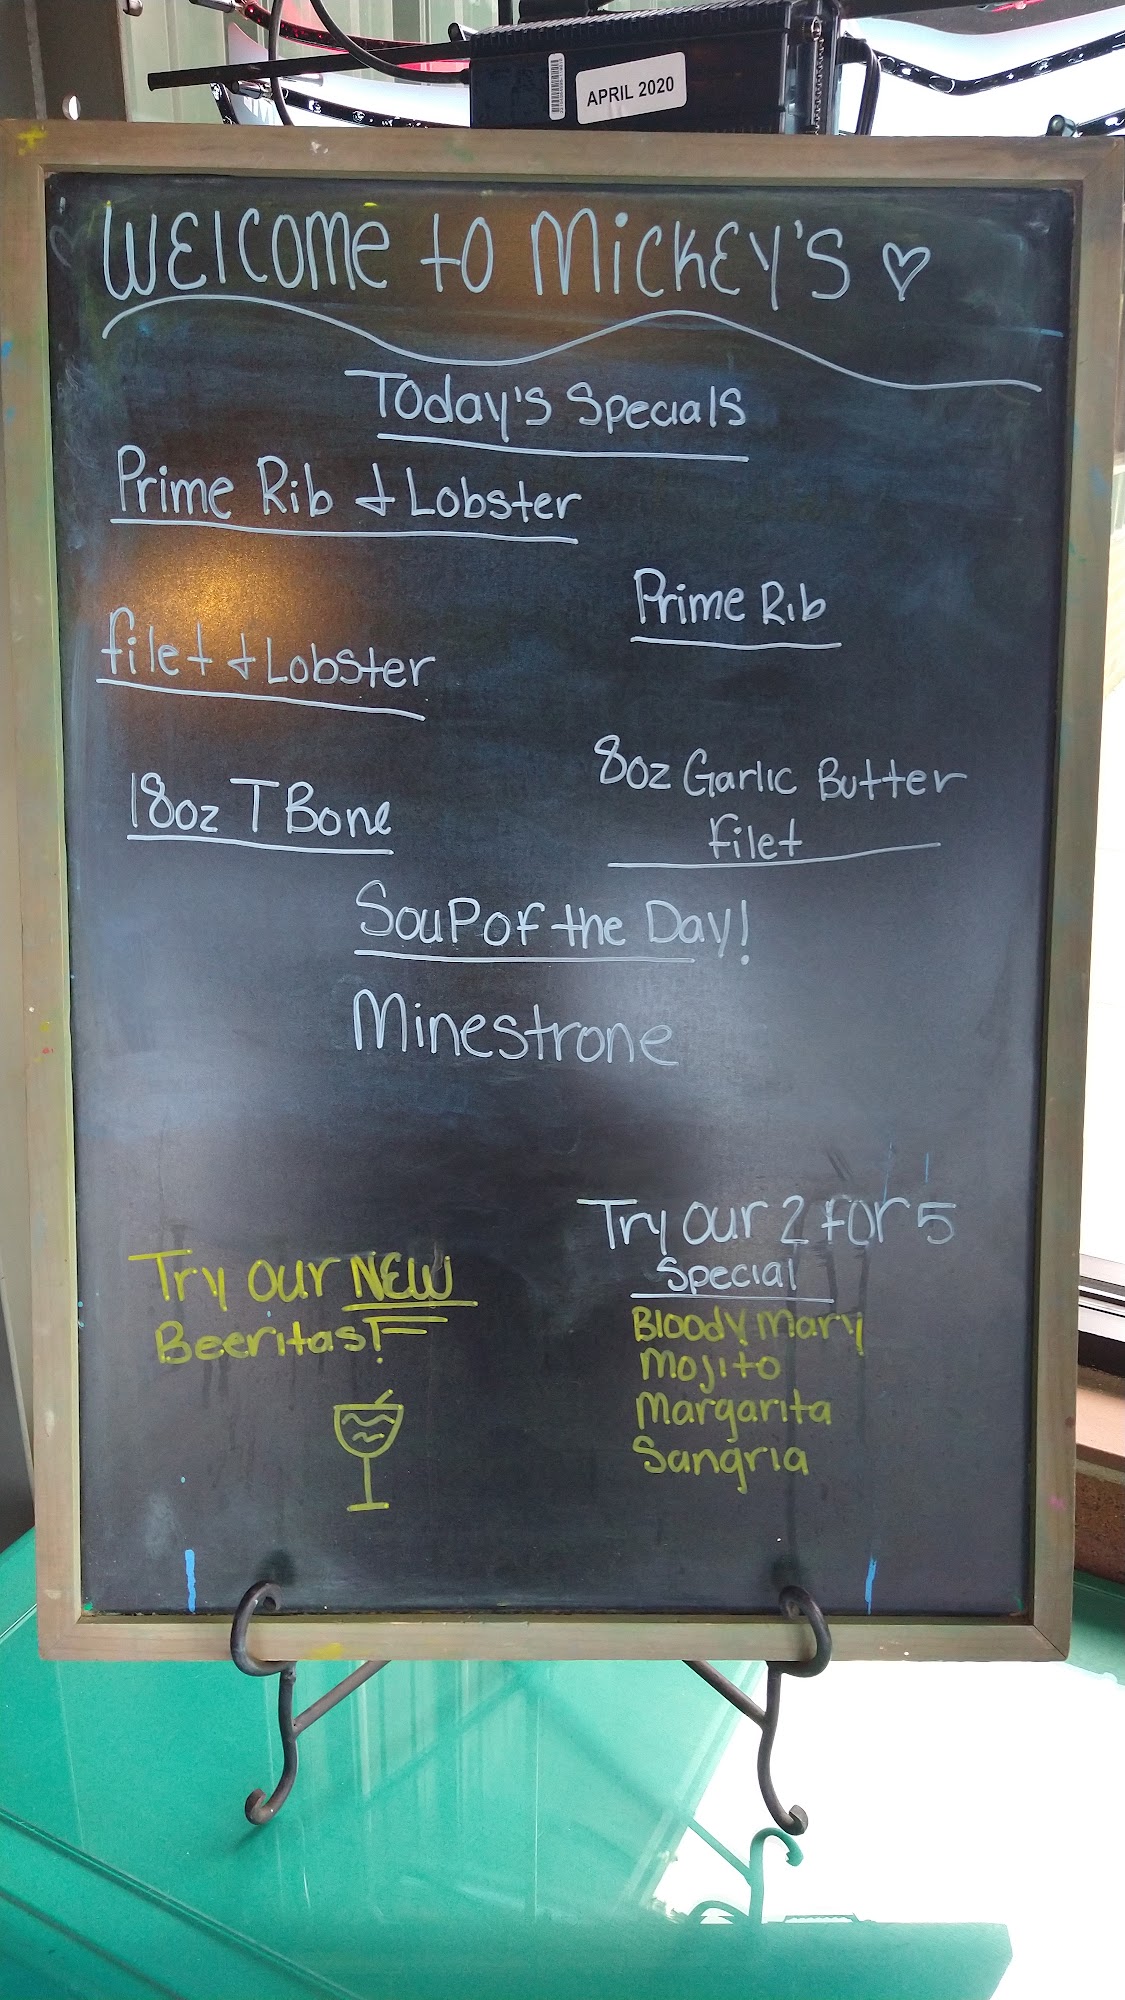 APRIL 2020
WElcome to MickEy's
Today's Specials
Prime Rib & Lobster
Prime Rib
filet & Lobster
8oz Garlic Butter
filet
18oz T Bone
Soup of the Day!
Minestrone
Try our 2 for 5
Special
Bloody Mary
Mojito
Margarita
Sangria
Try our NEW
Beeritas!